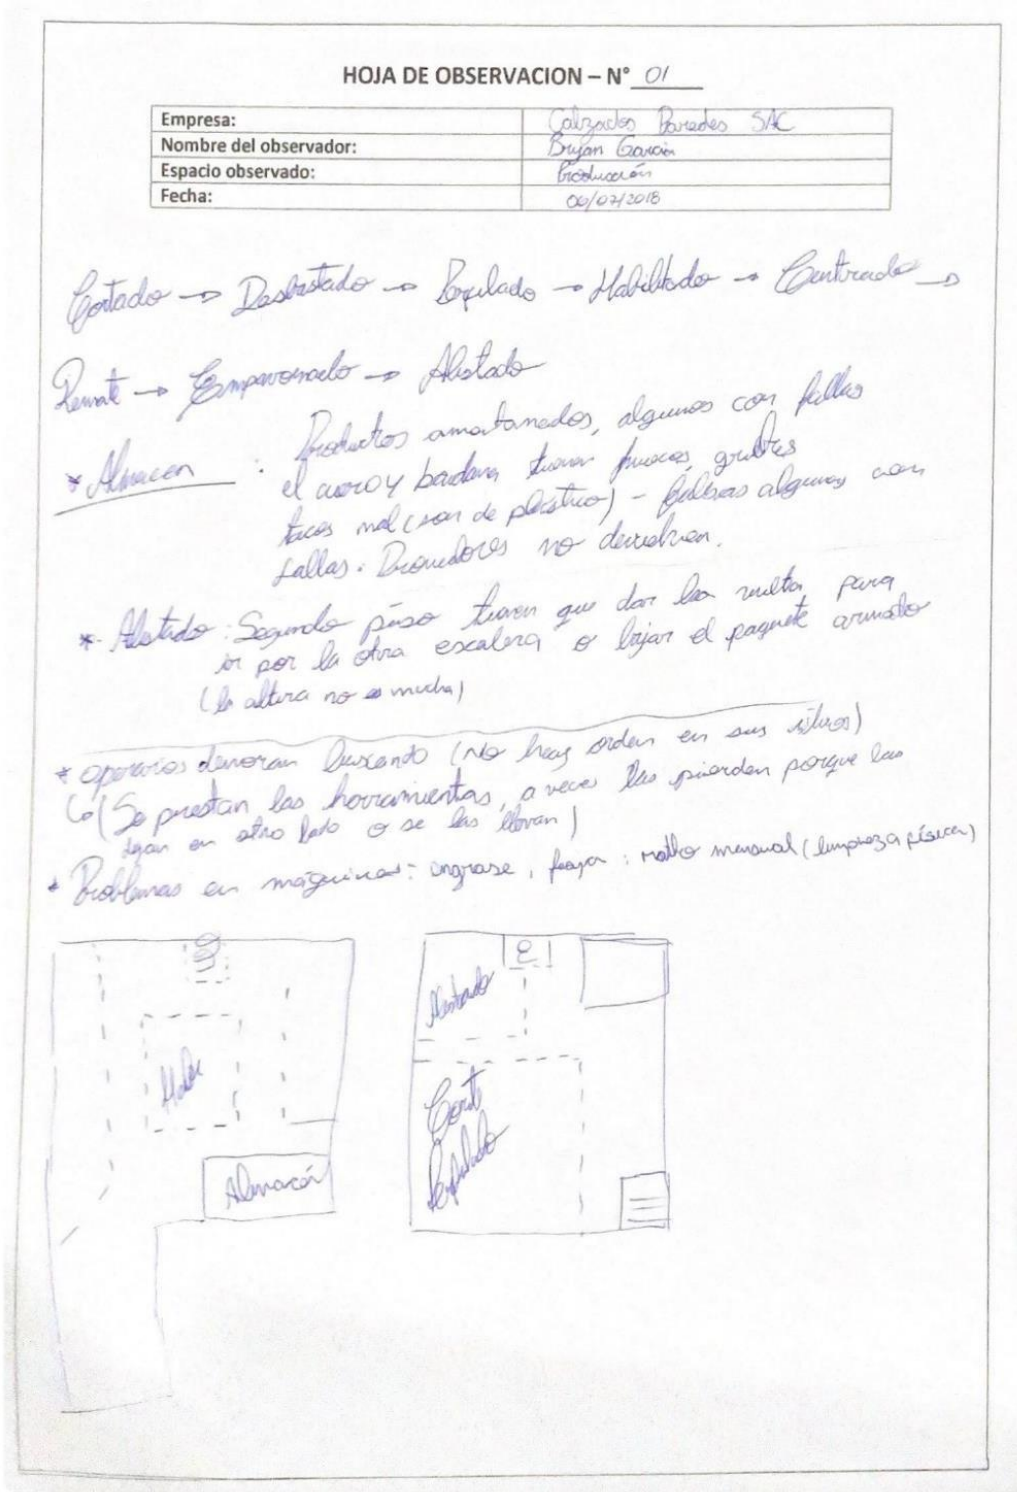 HOJA DE OBSERVACION – N° 01
Empresa: Calzados Paredes SAC
Nombre del observador: Bryan García
Espacio observado: Producción
Fecha: 06/07/2018
Cortado → Desbastado → Perfilado → Habilitado → Centrado →
Remate → Empavonado → Alistado
* Almacen : Productos amontonados, algunos con fallas
el cuero y badana tienen huecos, grietas
tacos mal (son de plástico) - fallas algunos con
fallas. Proveedores no devuelven.
* Alistado: Segundo piso tienen que dar la vuelta para
ir por la otra escalera o bajar el paquete armado
(la altura no es mucha)
* operarios demoran buscando (No hay orden en sus sitios)
(Se prestan las herramientas, a veces las pierden porque las
dejan en otro lado o se las llevan)
* Problemas en máquinas: engrase, : mtto mensual (limpieza física)
Alistado
Corte
Perfilado
Almacén